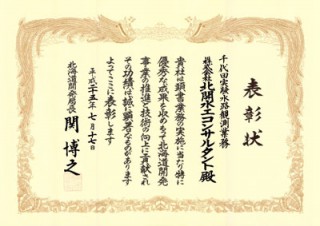 表彰状
千代田実験水路観測業務
株式会社北開水工コンサルタント殿
貴社は頭書業務の実施に当たり特に
優秀な成果を収めもって北海道開発
事業の推進と技術の向上に貢献され
その功績は誠に顕著なものがあります
よってここに表彰します
平成二十五年七月十七日
北海道開発局長
関博之